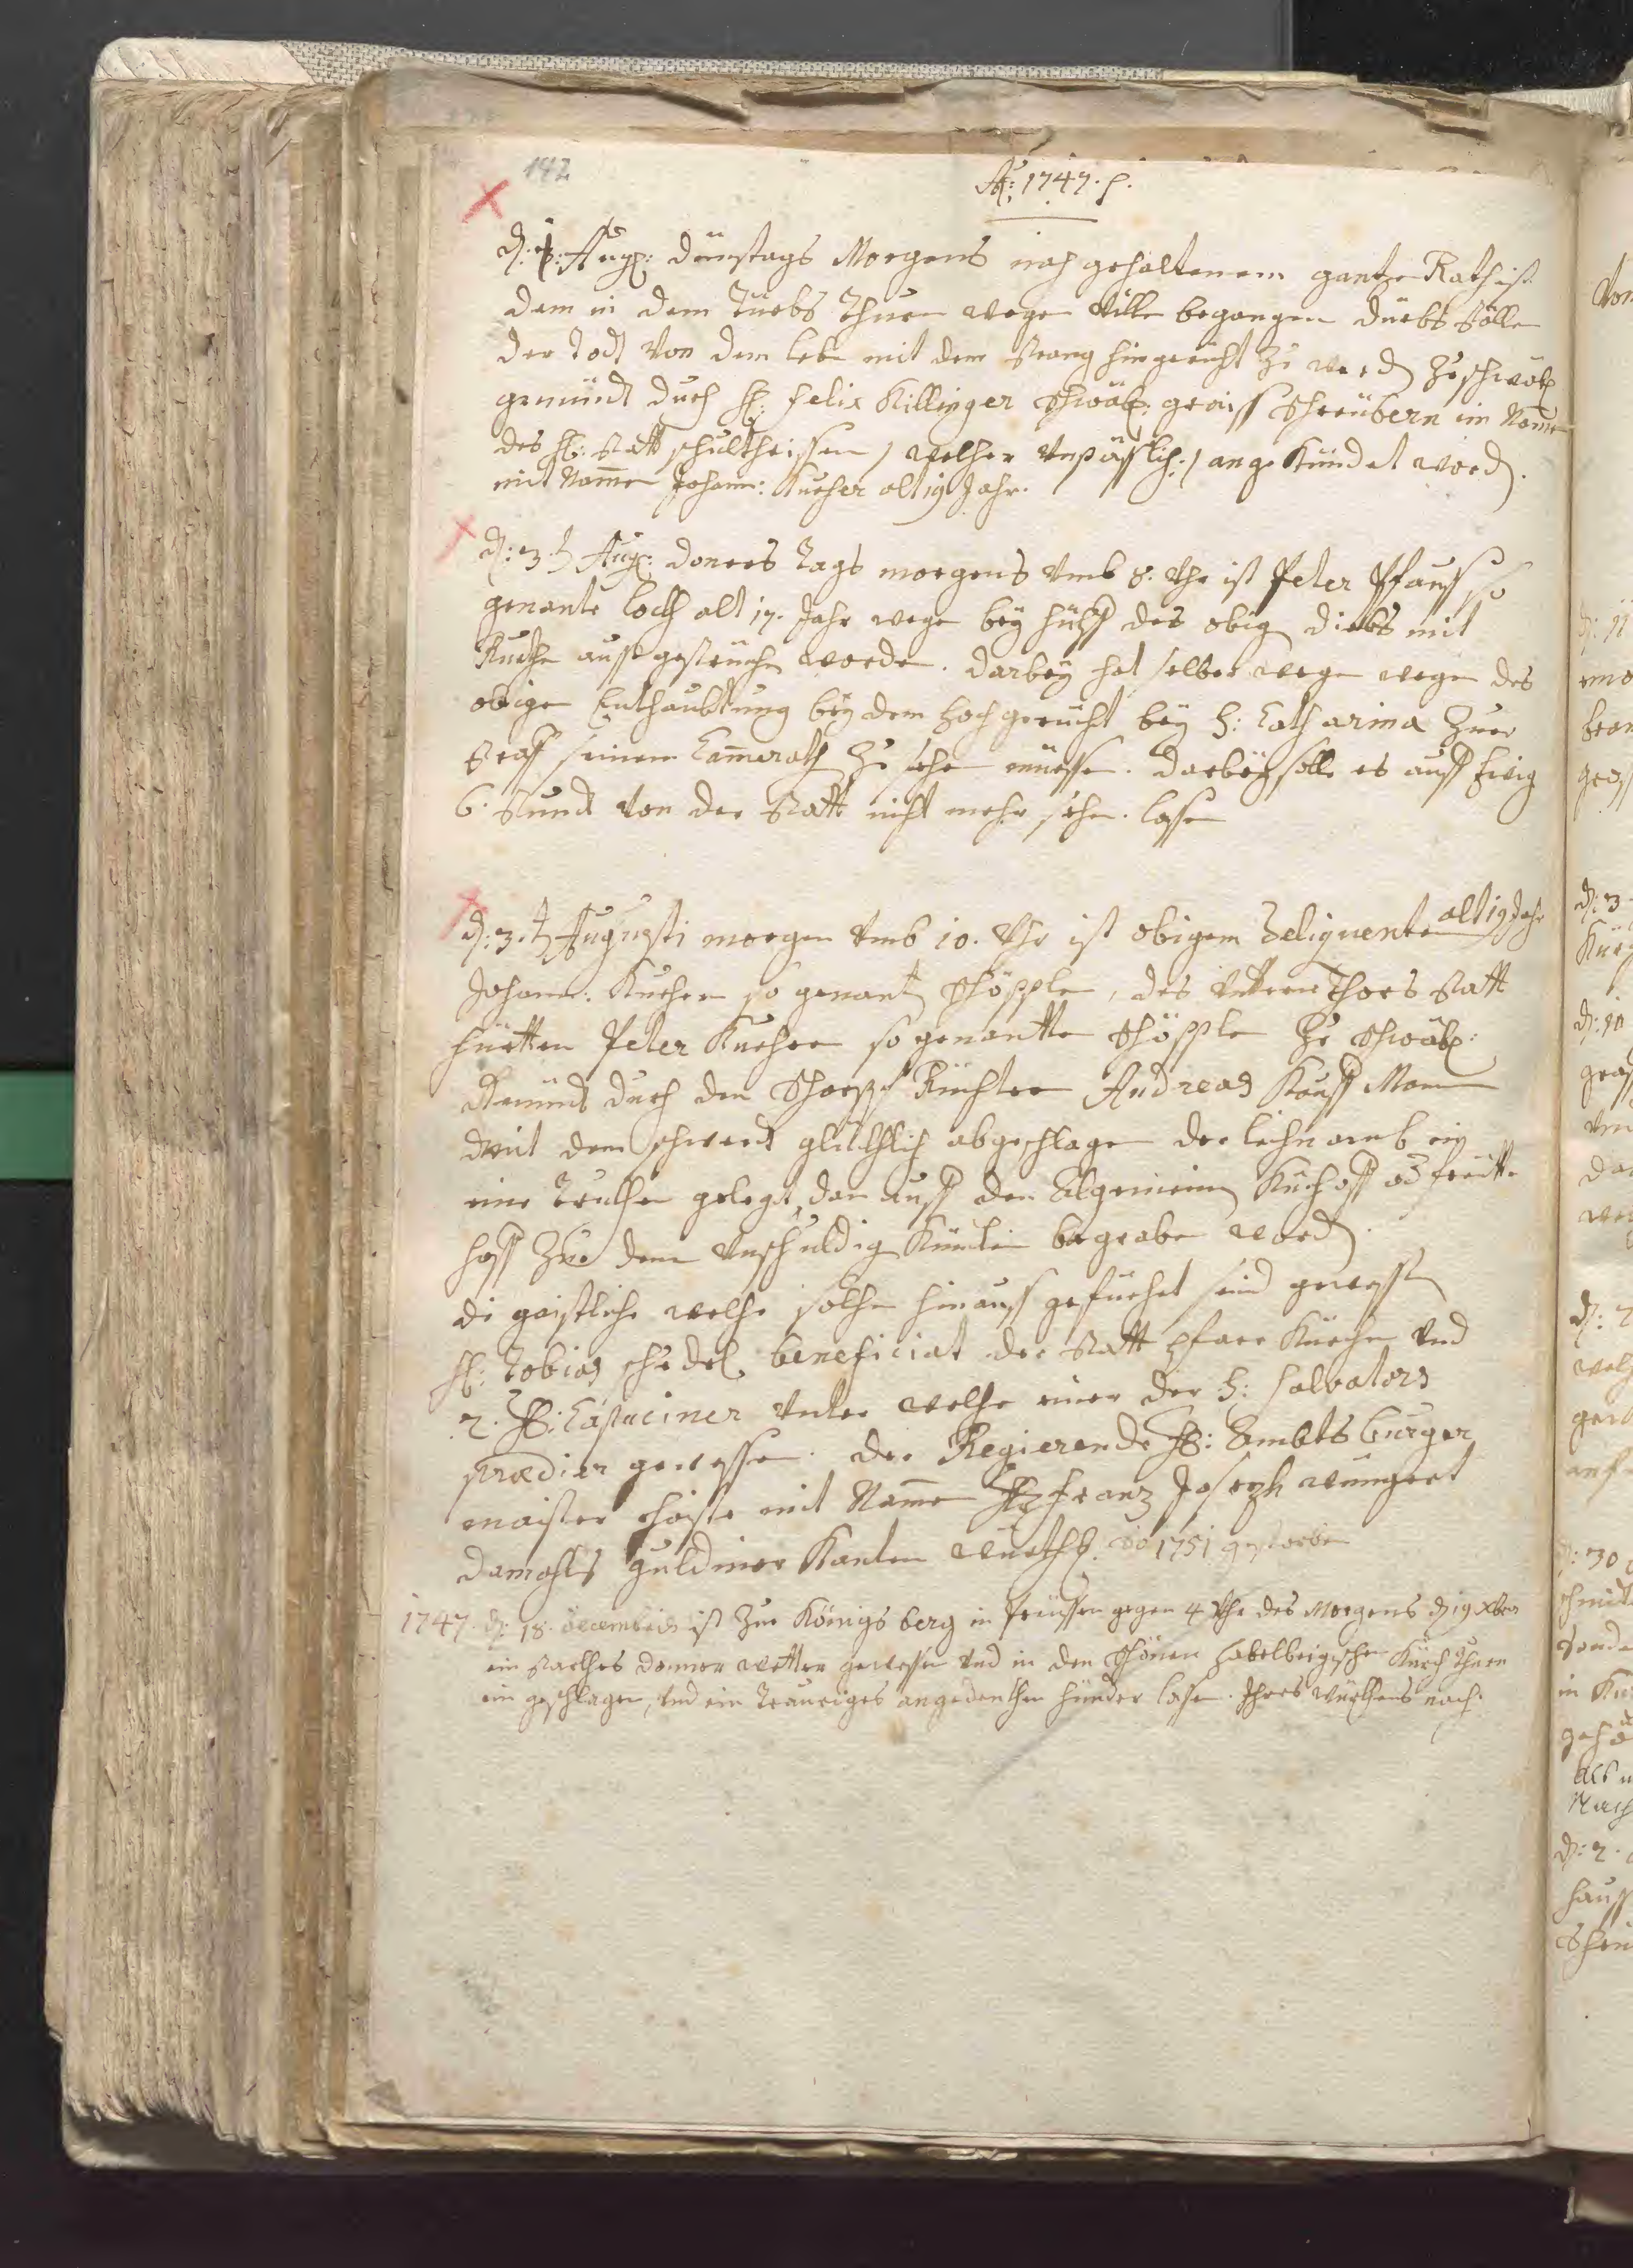 142
Aõ: 1747. p.
d: 1: Aug: dünstags Morgens nach gehaltenem gantze Rath ist
dem in dem Düebs Thurn wegen ville begangen düebställe
der Todt von dem lebe mit dem Strang hingericht zu werd zu schwäb
gemündt durch H: Felix Killinger Schwäb: groiss Schreübern im Name
des H: Statt schultheissen / welher unpässlich: / angekündet word.
mit Namen Johann: Kucher alt 19 Jahr.
d: 3.t Aug: Doners Tags morgens umb 8. Uhr ist Peter Pfauss so
genante Loch alt 17. Jahr wege bey hülff des obig diebs mit
Ruethe aussgestrüche worde. darbey hat selber wege wegen des
obigen Enthaubtung bey dem Hochgerücht bey H: Catharina Zuer
Straff seinem Camerath zu sehe müesse. darbey solle es auff Ewig
6. Stundt von der Statt nicht mehr sehe. lasse
d: 3.t Augusti morgen umb 10. Uhr ist obigem Deliquente alt 19 Jahr
Johann: Kucher so genant Schöpple, des untern Thors Statt
hüetten Peter Kucher so genantte Schöpple Zu Schwäb:
Gemündt durch den Scharpf Richter Andreas Kauff Mann
mit dem schwerdt glücklich abgeschlagen der leichnamb in
eine Truchen gelegt, dan auff den Algemeinen Kirchoff od freit
hoff Zue dem unschuldig Kindlen begraben word.
di geistliche welhe solhe hinauss gefüehret seind gewesse
H: Tobias schedel beneficiat der Statt pfarr Kürche und
2. HH: Capuciner unter welhe einer der H: Salvators
prædier gewessen. der Regierende H: Ambtsburger
maister hoiste mit Name H: Franz Joseph wungert
damohls guldiner Kanten würth. ao 1751 gestorbe
1747. d: 18. decembris ist Zue Königsberg in Preüssen gegen 4 Uhr des Morgens d 19 Xber
ein starckhes donner wetter gewesse und in den schönen Habelbergischen Kürch thurn
ein geschlagen, und ein trauriges angedenckhen hünder lasse. Ihres würckhens nach.